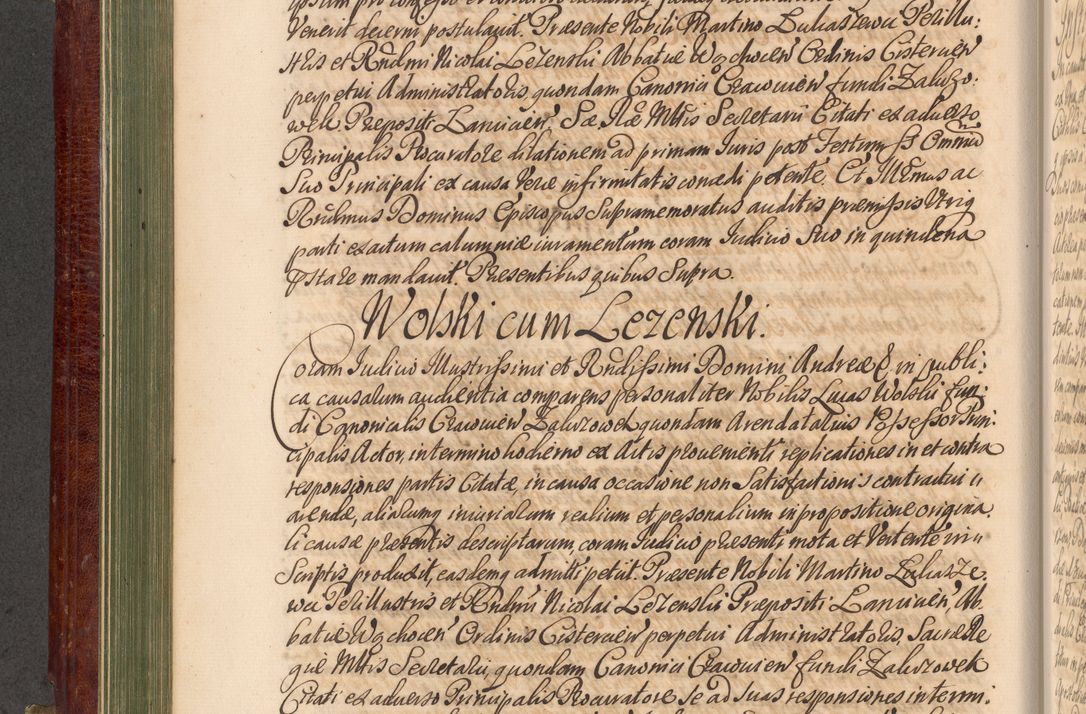 Venerit decerni postulavit. Præsente Nobili Martino Zukaszewic Perillu:
stris et Rndmi Nicolai Lezenski Abbatiæ Wąchocien Ordinis Cistercien
perpetui Administratoris, quondam Canonici Cracovien fundi Zalwzo:
wek Præpositi Lancicien Sæ Ræ Mttis Secretarii Citati ex adverso
Principalis Procuratore dilationem ad primam Iuris post Festum SS Omniũ
Suo Principali ex causa Veræ infirmitatis concedi petente. Et Illmus ac
Rndmus Dominus Episcopus Supramemoratus auditis præmissis Utriq
parti ex actum calumniæ iuramentum coram Iudicio Suo in quindena
præstare mandavit. Præsentibus quibus Supra.
Wolski cum Lezenski.
Coram Iudicio Illustrissimi et Rndissimi Domini Andreæ E in publi:
ca causarum audientia comparens personaliter Nobilis Lucas Wolski fun:
di Canonicalis Cracovien Zalwzowek quondam Arendatarius Possessor Prin:
cipalis Actor, in termino hodierno ex Actis provenienti replicationes in et contra
responsiones partis Citatæ, in causa occasione non Satisfactionis contractui
arendæ, aliarumq iniuriarum realium et personalium in propositione origina:
li causæ præsentis descriptarum, coram Iudicio præsenti mota et Vertente in
Scriptis produxit, easdemq admitti petiit. Præsente Nobili Martino Zukasze:
wic Perillustris et Rndmi Nicolai Lezenski Præpositi Lancicien, Ab:
batiæ Wąchocien Ordinis Cistercien perpetui Administratoris, Sacræ Re
giæ Mttis Secretarii, quondam Canonici Cracovien fundi Zalwzowek
Citati ex adverso Principalis Procuratore se ad suas responsiones in termi: